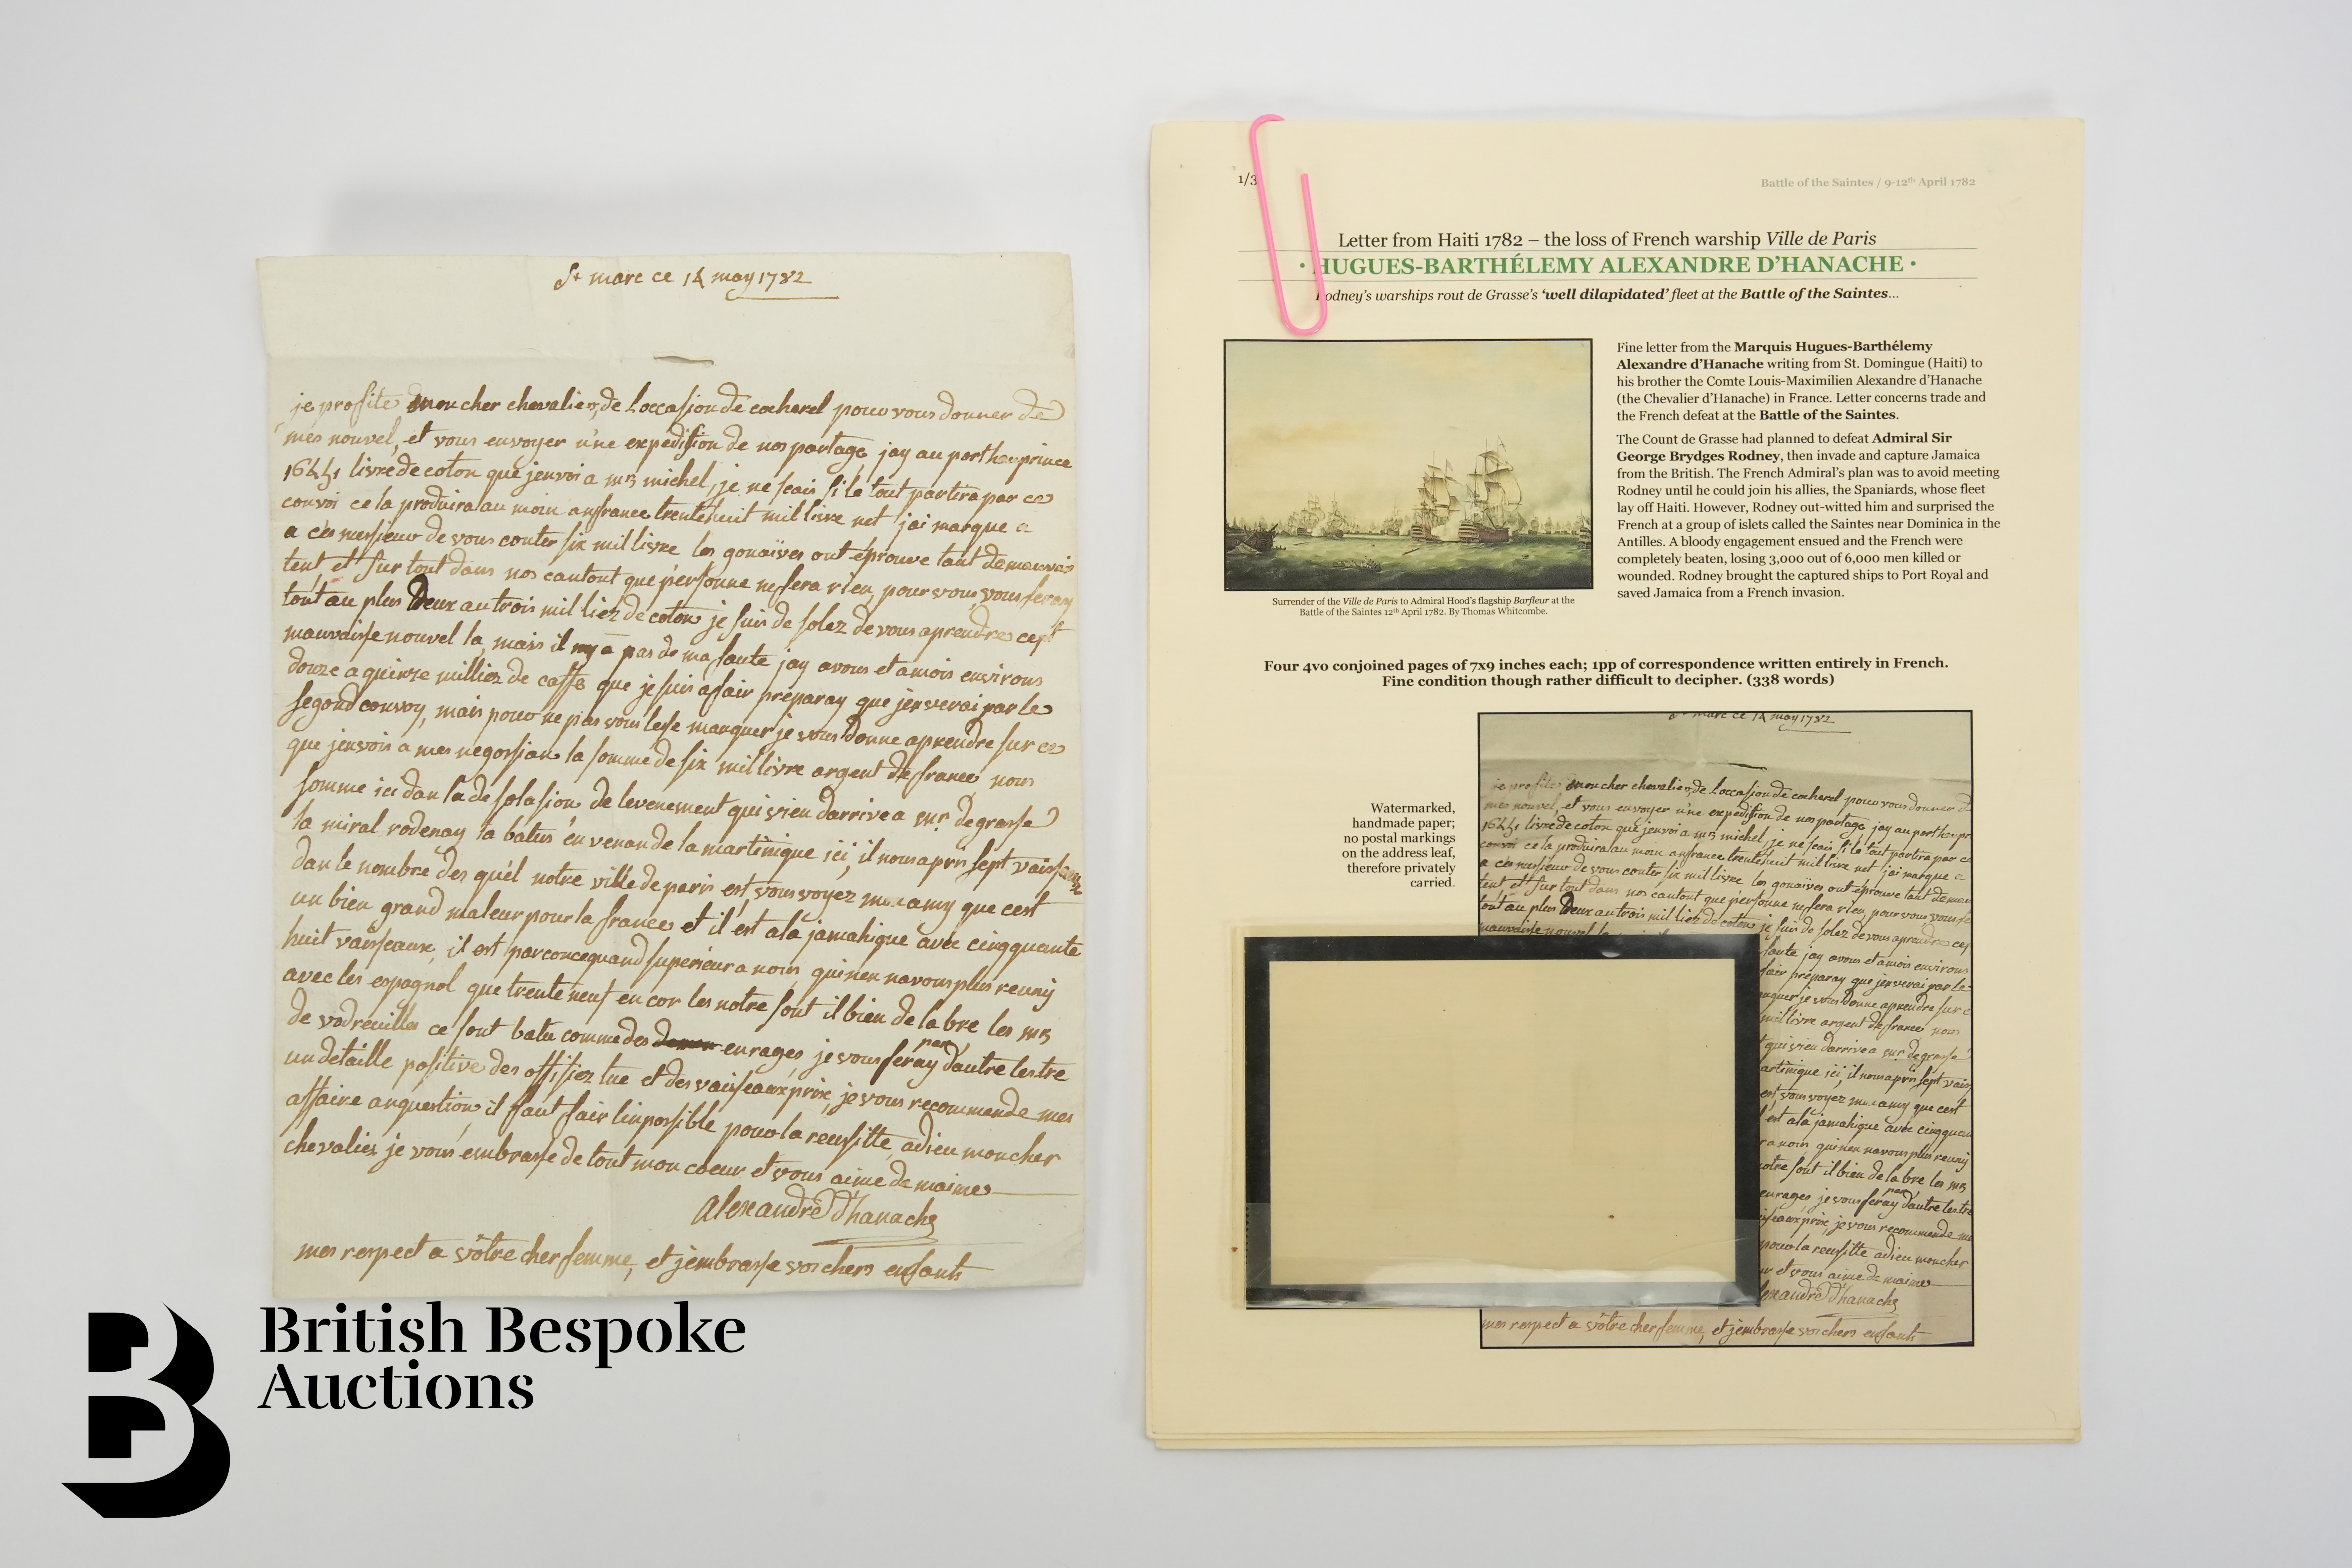 St marc ce 14 may 1782
je profite mon cher chevalier, de loccasion de cocherel pour vous donner de
mes nouvel, et vous envoyer une expedision de nos partage, jay au port hauprince
livre de coton que jenvoi a mrs michel, je ne scais si le tout partira par ce
convoi ce la produira au moin anfrance trentehuit mil livre net jai marque a
a ces messieur de vous conter six mil livre les gonaives ont éprouve tant de mauvais
tent et sur tout dans nos cantont que personne ne fera rien, pour vous, vous feray
tout au plus deux au trois mil liez de coton, je suis de solez de vous aprendre cept
mauvaisse nouvel la, mais il ny a pas de ma faute jay avous et amois environs
douze a quinze milliez de caffe que je suis afair préparay que jenverai par le
segond convoy, mais pour ne pas vous lesse manquer je vous donne aprendre sur ce
que jenvois a mes negossians la somme de six mil livre argent de france, nous
somme ici dan la desolasion de levenement qui vien darrive a mr. degrasse
la miral rodenay la batus en venan de la martinique ici, il nous apris sept vaisseaux
dan le nombre des quél notre ville de paris est, vous voyez mon amy que cest
un bien grand maleur pour la france, et il est ala jamahique avec cinqquante
huit vaisseaux, il est par concequand superieur a nous qui nen navons plus reuny
avec les espagnol que trente neuf en cor les notre sont il bien de la bre les mrs
de vodreuille ce sont batu comme des enrages, je vous feray par dautre lestre
un detaille positive des offisiez tue et des vaisseaux prix, je vous recommende mes
affaire anquestion, il faut fair linpossible pour la reussitte, adieu mon cher
chevalier, je vous embrasse de tout mon coeur et vous aime de maime
alexandre d'hanache
mes respect a vôtre cher femme, et jembrasse vos chers enfants
British Bespoke
Auctions
1/3
Battle of the Saintes / 9-12th April 1782
Letter from Haiti 1782 – the loss of French warship Ville de Paris
• HUGUES-BARTHÉLEMY ALEXANDRE D'HANACHE •
Rodney's warships rout de Grasse's 'well dilapidated' fleet at the Battle of the Saintes...
Fine letter from the Marquis Hugues-Barthélemy
Alexandre d'Hanache writing from St. Domingue (Haiti) to
his brother the Comte Louis-Maximilien Alexandre d'Hanache
(the Chevalier d'Hanache) in France. Letter concerns trade and
the French defeat at the Battle of the Saintes.
The Count de Grasse had planned to defeat Admiral Sir
George Brydges Rodney, then invade and capture Jamaica
from the British. The French Admiral's plan was to avoid meeting
Rodney until he could join his allies, the Spaniards, whose fleet
lay off Haiti. However, Rodney out-witted him and surprised the
French at a group of islets called the Saintes near Dominica in the
Antilles. A bloody engagement ensued and the French were
completely beaten, losing 3,000 out of 6,000 men killed or
wounded. Rodney brought the captured ships to Port Royal and
saved Jamaica from a French invasion.
Surrender of the Ville de Paris to Admiral Hood's flagship Barfleur at the
Battle of the Saintes 12th April 1782. By Thomas Whitcombe.
Four 4vo conjoined pages of 7x9 inches each; 1pp of correspondence written entirely in French.
Fine condition though rather difficult to decipher. (338 words)
Watermarked,
handmade paper;
no postal markings
on the address leaf,
therefore privately
carried.